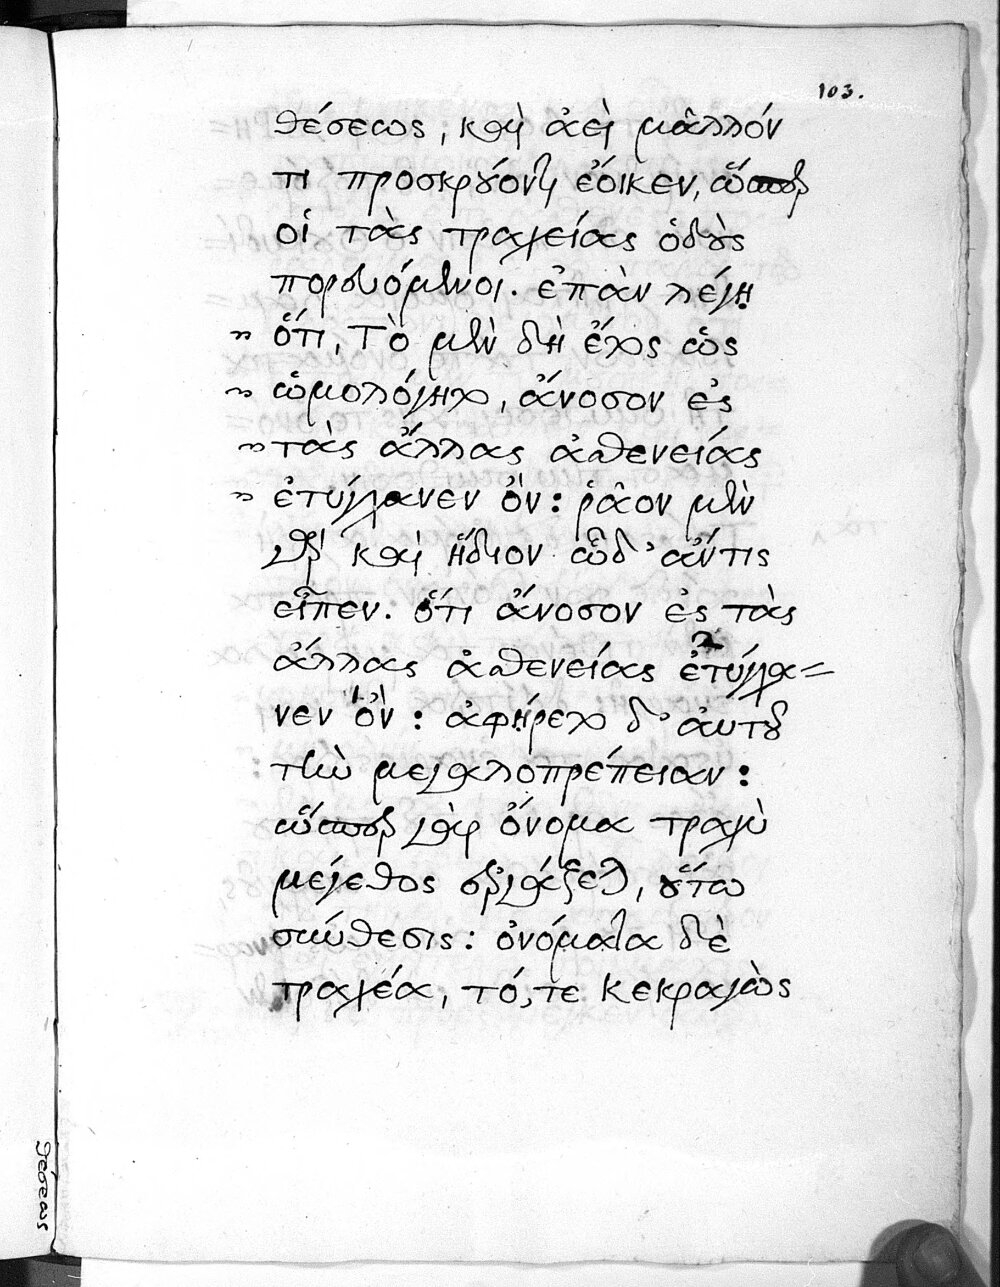 103.
θέσεως, καὶ ἀεὶ μᾶλλόν
τι προσκρούοντι ἔοικεν, ὥσπερ
οἱ τὰς τραχείας ὁδοὺς
πορευόμενοι. ἐπὰν λέγῃ
" ὅτι, Τὸ μὲν δὴ ἔτος ὡς
" ὡμολόγητο, ἄνοσον ἐς
" τὰς ἄλλας ἀσθενείας
" ἐτύγχανεν ὄν: ῥᾷον μὲν
γὰρ καὶ ἥδιον ὧδ' ἄν τις
εἶπεν. ὅτι ἄνοσον ἐς τὰς
ἄλλας ἀσθενείας ἐτύγχα=
νεν ὄν: ἀφῄρετο δ' αὐτοῦ
τὴν μεγαλοπρέπειαν:
ὥσπερ γὰρ ὄνομα τραχὺ
μέγεθος ἐργάζεται, οὕτω
σύνθεσις: ὀνόματα δὲ
τραχέα, τό, τε κεκραγὼς
θέσεως